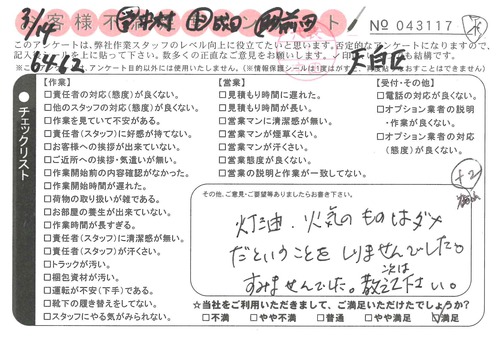 3/14
お客様不満
№ 043117
このアンケートは、弊社作業スタッフのレベル向上に役立てたいと思います。否定的なアンケートになりますが、
6462
天白区
チェックリスト
【作業】
□責任者の対応(態度)が良くない。
□他のスタッフの対応(態度)が良くない。
□作業を見ていて不安がある。
□責任者(スタッフ)に好感が持てない。
□お客様への挨拶が出来ていない。
□ご近所への挨拶・気遣いが無い。
□作業開始前の内容確認がなかった。
□作業開始時間が遅れた。
□荷物の取り扱いが雑である。
□お部屋の養生が出来ていない。
□作業時間が長すぎる。
□責任者(スタッフ)に清潔感が無い。
□責任者(スタッフ)が汗くさい。
□トラックが汚い。
□梱包資材が汚い。
□運転が不安(下手)である。
□靴下の履き替えをしてない。
□スタッフにやる気がみられない。
【営業】
□見積もり時間に遅れた。
□見積もり時間が長い。
□営業マンに清潔感が無い。
□営業マンが煙草くさい。
□営業マンが汗くさい。
□営業態度が良くない。
□営業の説明と作業が一致してない。
【受付・その他】
□電話の対応が良くない。
□オプション業者の説明
・作業が良くない。
□オプション業者の対応
(態度)が良くない。
+2
その他、ご意見・ご要望等ありましたらお書き下さい。
灯油、火気のものはダメ
だということをしりませんでした。
すみませんでした。次は教えて下さい。
☆当社をご利用いただきまして、ご満足いただけたでしょうか?
□不満 □やや不満 □普通 □やや満足 ☑満足